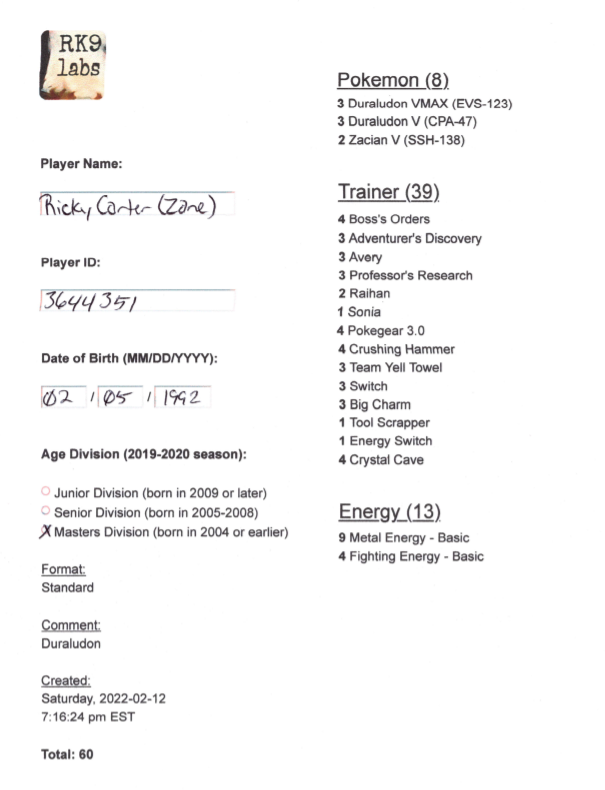 RK9
labs
Player Name:
Ricky Carter (Zone)
Player ID:
3644351
Date of Birth (MM/DD/YYYY):
02 / 05 / 1992
Age Division (2019-2020 season):
Junior Division (born in 2009 or later)
Senior Division (born in 2005-2008)
X Masters Division (born in 2004 or earlier)
Format:
Standard
Comment:
Duraludon
Created:
Saturday, 2022-02-12
7:16:24 pm EST
Total: 60
Pokemon (8)
3 Duraludon VMAX (EVS-123)
3 Duraludon V (CPA-47)
2 Zacian V (SSH-138)
Trainer (39)
4 Boss's Orders
3 Adventurer's Discovery
3 Avery
3 Professor's Research
2 Raihan
1 Sonia
4 Pokegear 3.0
4 Crushing Hammer
3 Team Yell Towel
3 Switch
3 Big Charm
1 Tool Scrapper
1 Energy Switch
4 Crystal Cave
Energy (13)
9 Metal Energy - Basic
4 Fighting Energy - Basic